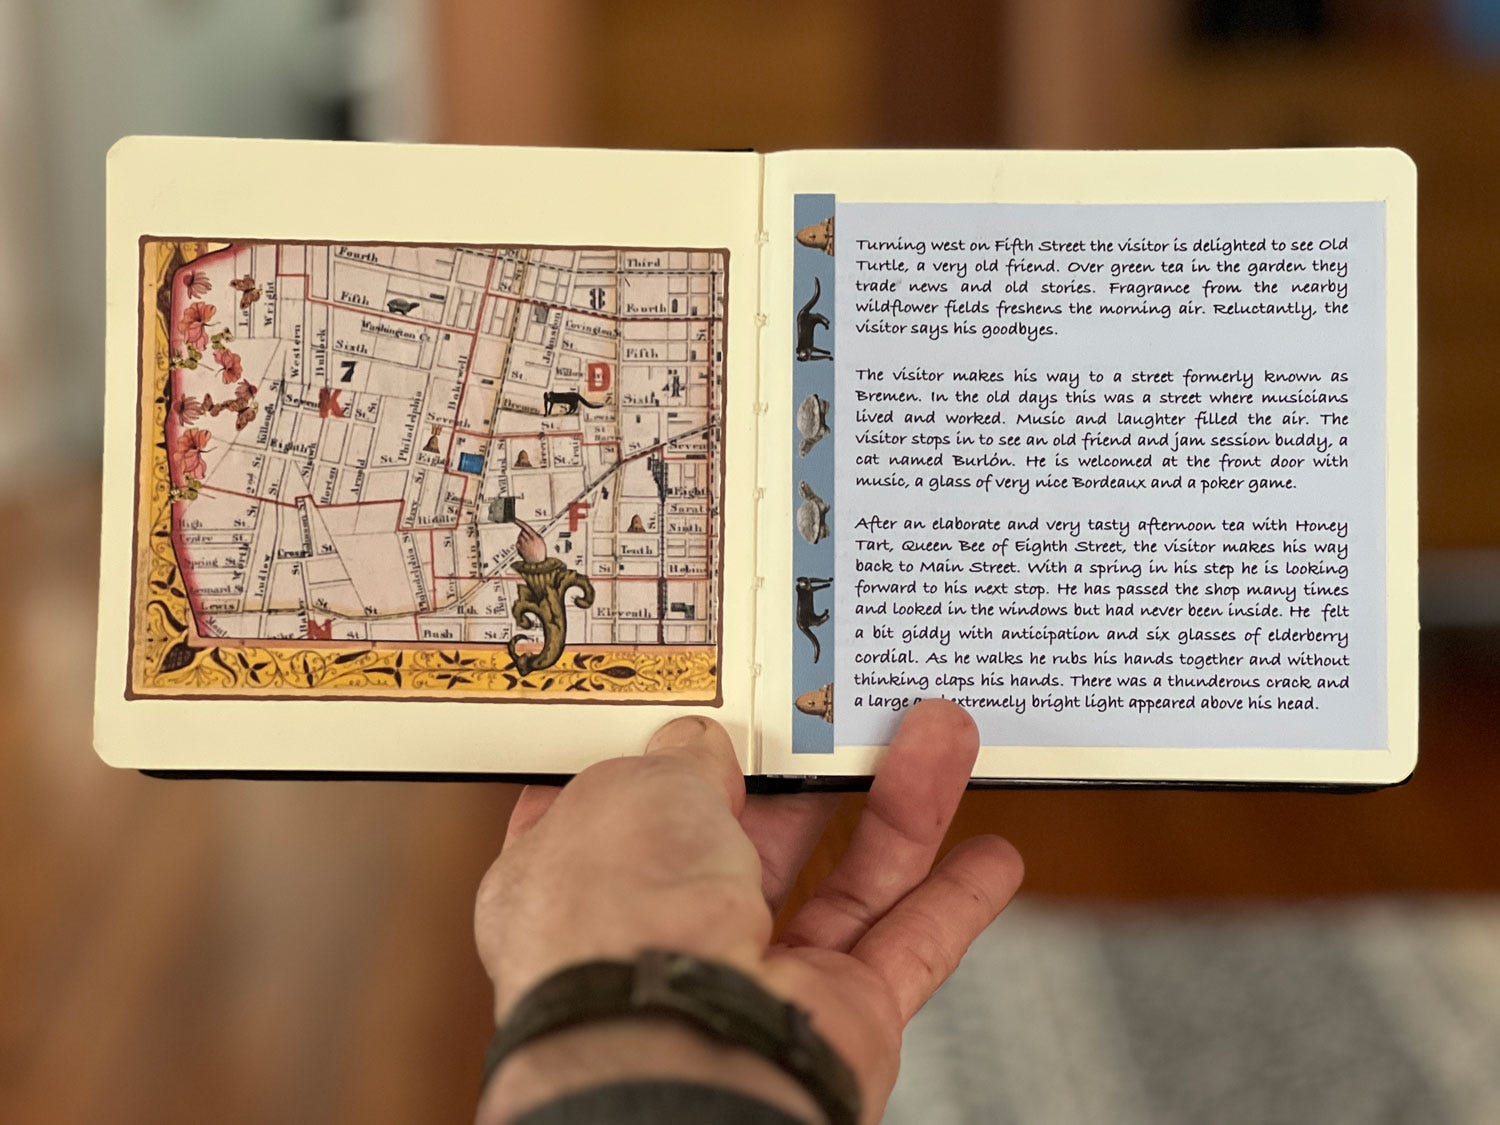 Fourth
Third
Fifth
8
Fourth
Wright
Washington Ct.
Covington St.
Johnston
Western
Bullock
Sixth
Bakewell
St.
Fifth
7
D
4
K
Bremen
Sixth
St.
St.
Lewis
Philadelphia
Seventh
Seventh
Eighth
Arnold
St.
Eighth
Horton
Eight
High St.
Riddle
F
Ninth
Centre St.
Main St.
Tenth
Spring St.
Cross St.
Ludlow
Philadelphia
Leonard St.
Lewis
Eleventh
St.
Bush
St.
Turning west on Fifth Street the visitor is delighted to see Old
Turtle, a very old friend. Over green tea in the garden they
trade news and old stories. Fragrance from the nearby
wildflower fields freshens the morning air. Reluctantly, the
visitor says his goodbyes.
The visitor makes his way to a street formerly known as
Bremen. In the old days this was a street where musicians
lived and worked. Music and laughter filled the air. The
visitor stops in to see an old friend and jam session buddy, a
cat named Burlón. He is welcomed at the front door with
music, a glass of very nice Bordeaux and a poker game.
After an elaborate and very tasty afternoon tea with Honey
Tart, Queen Bee of Eighth Street, the visitor makes his way
back to Main Street. With a spring in his step he is looking
forward to his next stop. He has passed the shop many times
and looked in the windows but had never been inside. He felt
a bit giddy with anticipation and six glasses of elderberry
cordial. As he walks he rubs his hands together and without
thinking claps his hands. There was a thunderous crack and
a large extremely bright light appeared above his head.